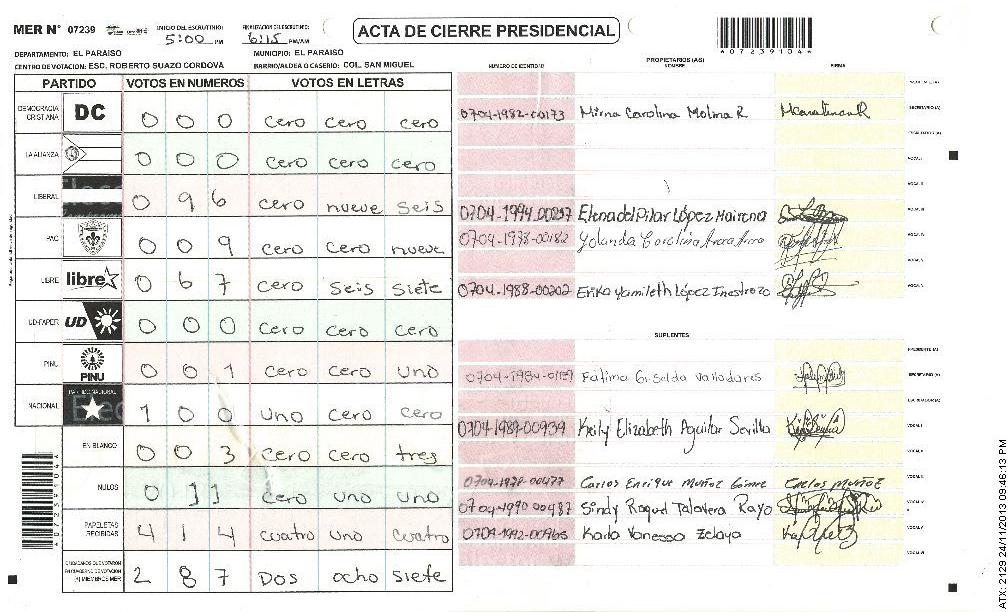 MER N° 07239 INICIO DEL ESCRUTINIO: 5:00 PM FINALIZACION DEL ESCRUTINIO: 6:15 PM/AM ACTA DE CIERRE PRESIDENCIAL
DEPARTAMENTO: EL PARAISO MUNICIPIO: EL PARAISO
CENTRO DE VOTACION: ESC. ROBERTO SUAZO CORDOVA BARRIO/ALDEA O CASERIO: COL. SAN MIGUEL
PARTIDO VOTOS EN NUMEROS VOTOS EN LETRAS
DEMOCRACIA CRISTIANA DC 0 0 0 cero cero cero
LA ALIANZA 0 0 0 cero cero cero
LIBERAL 0 9 6 cero nueve seis
PAC 0 0 9 cero cero nueve
LIBRE libre 0 6 7 cero seis siete
UD-FAPER UD 0 0 0 cero cero cero
PINU PINU 0 0 1 cero cero uno
NACIONAL PARTIDO NACIONAL 1 0 0 uno cero cero
EN BLANCO 0 0 3 cero cero tres
NULOS 0 1 1 cero uno uno
PAPELETAS RECIBIDAS 4 1 4 cuatro uno cuatro
CIUDADANOS QUE VOTARON EN CUADERNO DE VOTACION (+) MIEMBROS MER 2 8 7 Dos ocho siete
PROPIETARIOS (AS)
NUMERO DE IDENTIDAD NOMBRE FIRMA
SECRETARIO (A)
0704-1982-00173 Mirna Carolina Molina R
0704-1994-00237 Elena del Pilar López Mairena
0704-1978-00182 Yolanda Carolina
0704-1988-00202 Erika Yamileth López Inestroza
SUPLENTES
PRESIDENTE (A)
SECRETARIO (A)
Fatima Griselda Valladares
ESCRUTADOR (A)
0704-1989-00939 Keily Elizabeth Aguilar Sevilla
0704-1978-00477 Carlos Enrique Muñoz Gómez Carlos Muñoz
0704-1990 00487 Sindy Raquel Talavera Rayo
0704-1992-00965 Karla Vanessa Zelaya
A072391044
ATX: 2129 24/11/2013 09:46:13 PM